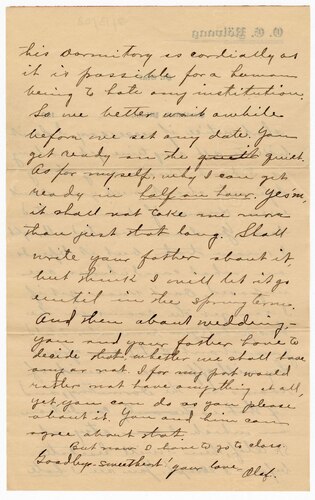 O. E. Rölvaag
this Dormitory as cordially as
it is possible for a human
being to hate any institution.
So we better wait awhile
before we set any date. You
get ready on the quilt quilt.
As for myself, why I can get
ready in half an hour. Yes'm,
it shall not take me more
than just that long. Shall
write your father about it,
but think I will let it go
until in the spring term.
And then about wedding,—
you and your father have to
decide that, whether we shall have
any or not. I for my part would
rather not have anything at all,
yet you can do as you please
about it. You and him can
agree about that.
But now I have to go to class.
Goodbye sweetheart. your love
Olaf.